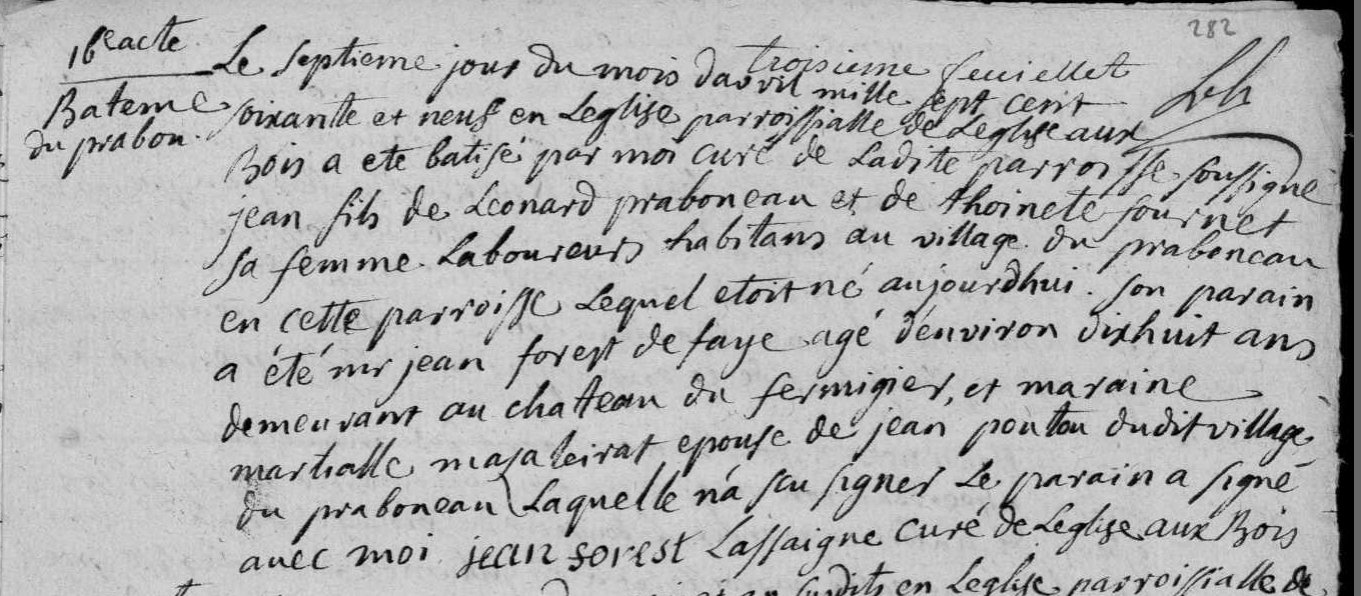 282
troisieme feuiellet
16e acte
Bateme
du prabon.
Le septieme jour du mois davril mille sept cent
soixante et neuf en Leglise parroissialle de Leglise aux
Bois a ete batisé par moi curé de Ladite parroisse soussigné
jean fils de Leonard praboneau et de thoinete fournet
sa femme Laboureurs habitans au village du praboneau
en cette parroisse Lequel etoit né aujourdhui. son parain
a été mr jean forest de faye agé d'environ dixhuit ans
demeurant au chateau du fermigier, et maraine
martialle masaleirat epouse de jean pouton dudit village
du praboneau Laquelle n'a sçu signer Le parain a signé
avec moi jean forest Lassaigne curé de Leglise aux Bois
en Leglise parroissialle de